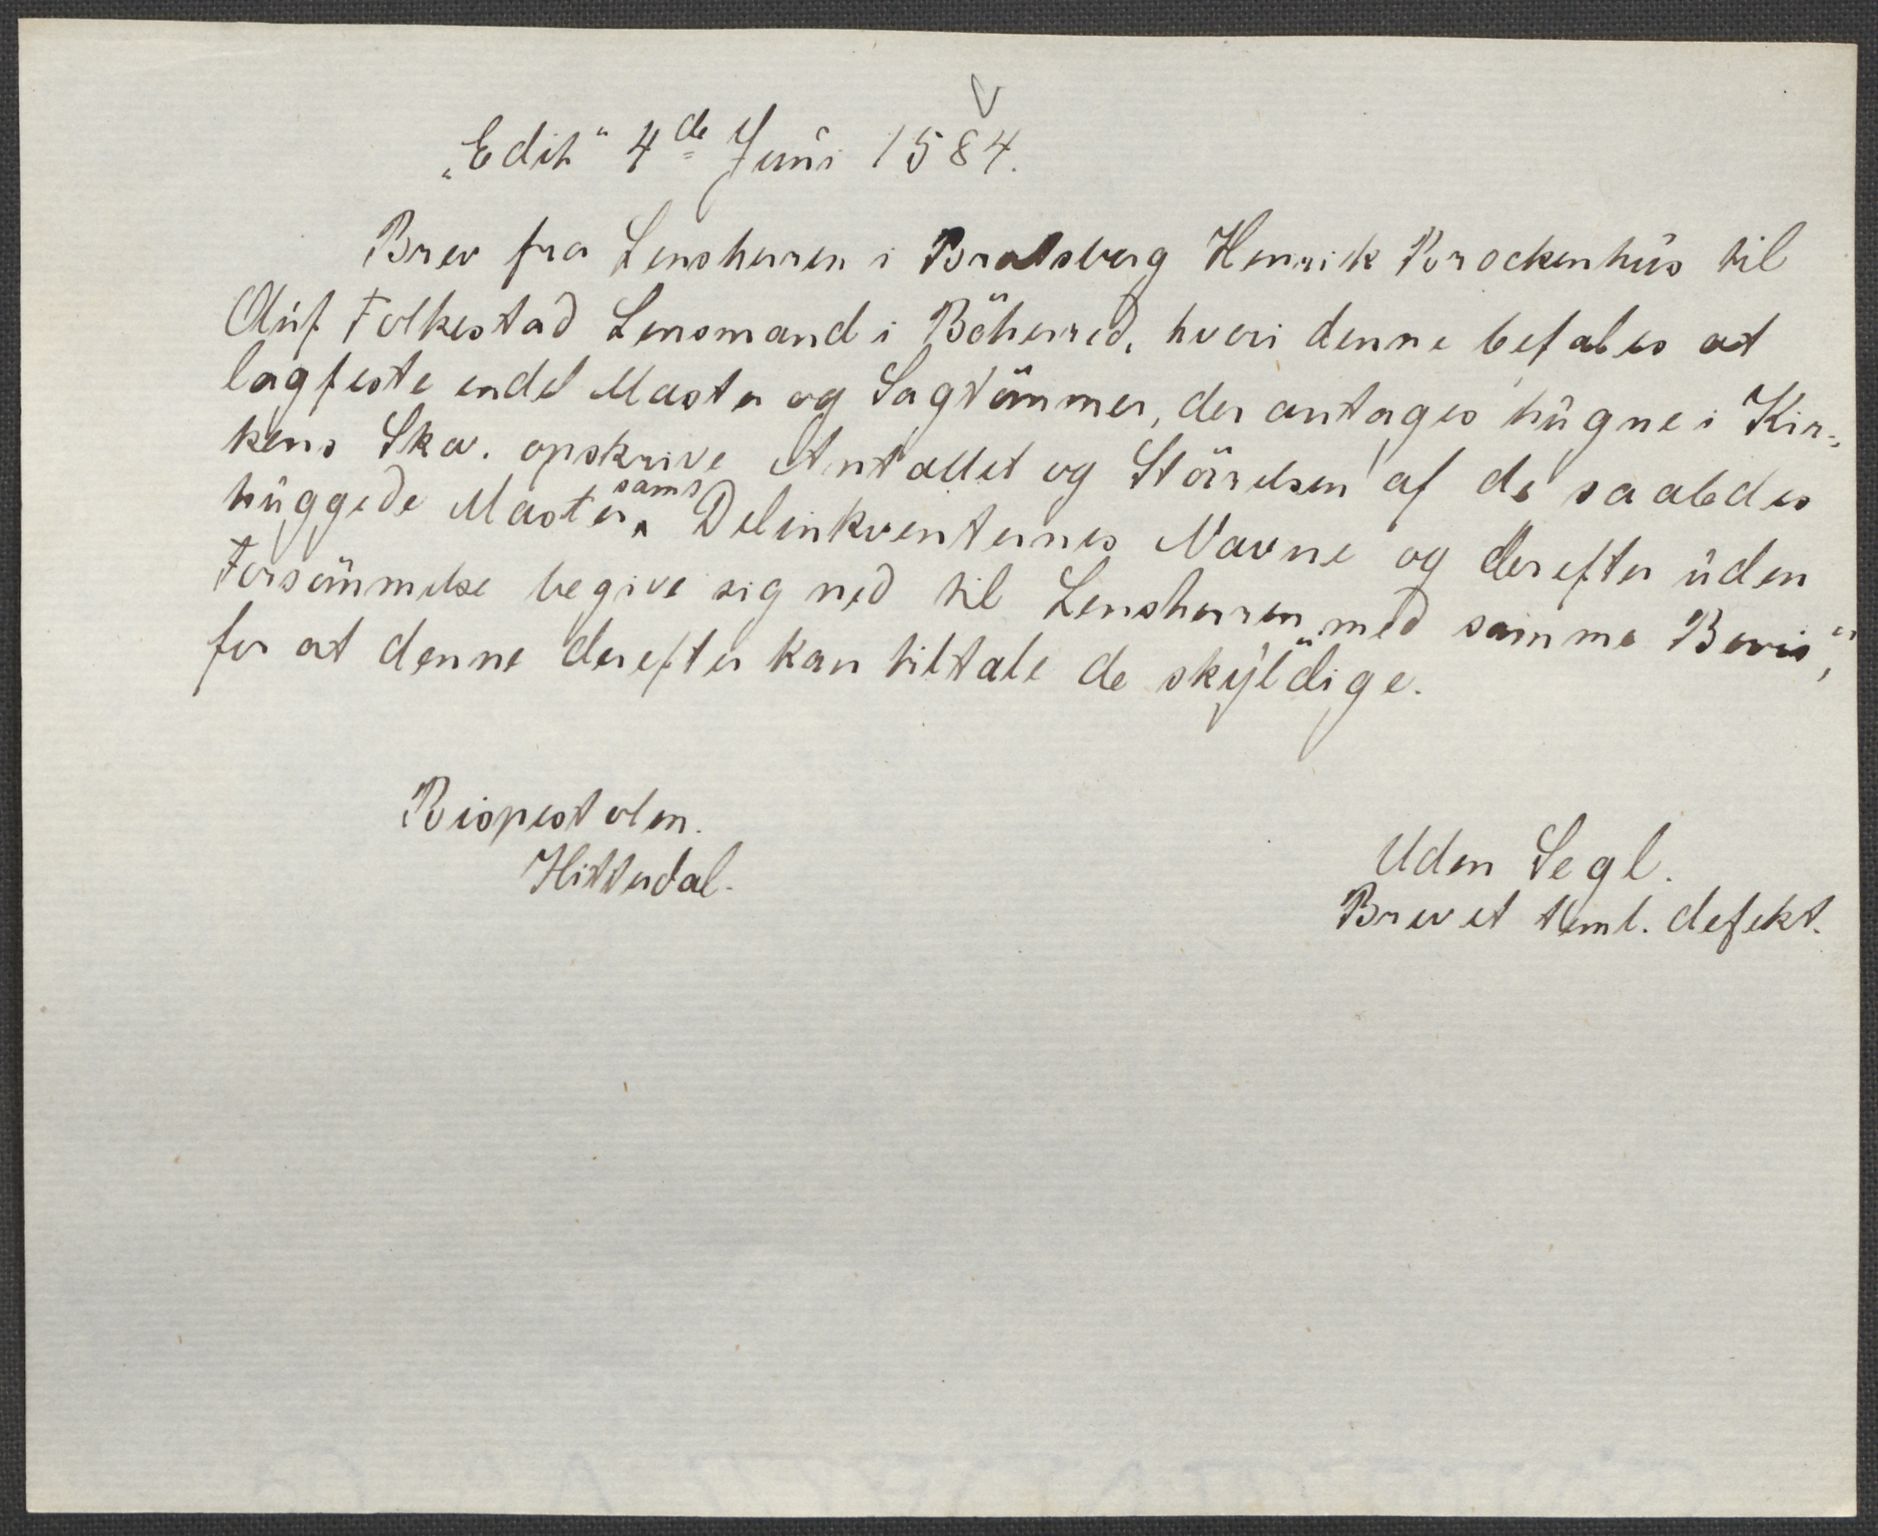 „Edit“ 4de Juni 1584.
Brev fra Lensherren i Bratsberg Henrik Brockenhus til
Oluf Folkestad Lensmand i Böherred, hvori denne befales at
lagfeste endel Master og Sagtömmer, der antages hugne i Kir-
kens Skov. opskrive Antallet og Störrelsen af de saaledes
huggede Master samt Delinkventernes Navne og derefter uden
Forsömmelse begive sig ned til Lensherren „med samme Bevis“,
for at denne derefter kan tiltale de skyldige.
Bispestolen.
Hitterdal.
Uden Segl.
Brevet teml. defekt.